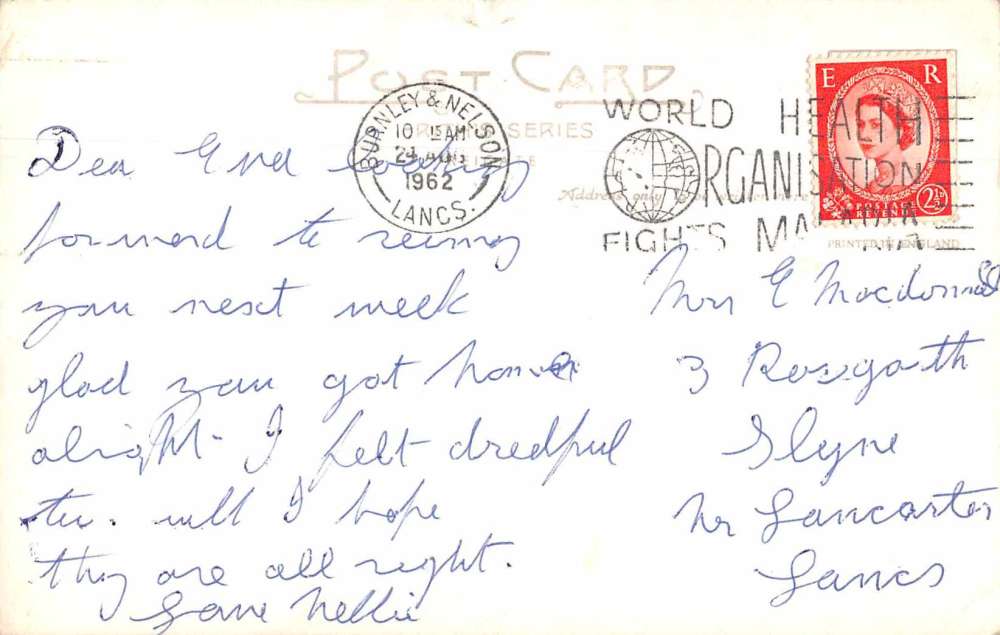 POST CARD
SERIES
BURNLEY & NELSON
10 15 AM
24 AUG
1962
LANCS.
WORLD HEALTH
ORGANISATION
FIGHTS MALARIA
E R
POSTAGE
REVENUE
2½D
Address only
PRINTED IN ENGLAND
Dea Ena looking
forward to seeing
you next week
glad you got home
alright. I felt dredful
too. well I hope
they are all right.
Love Nellie
Mrs E Macdonald
3 Rosgarth
Slyne
Nr Lancaster
Lancs